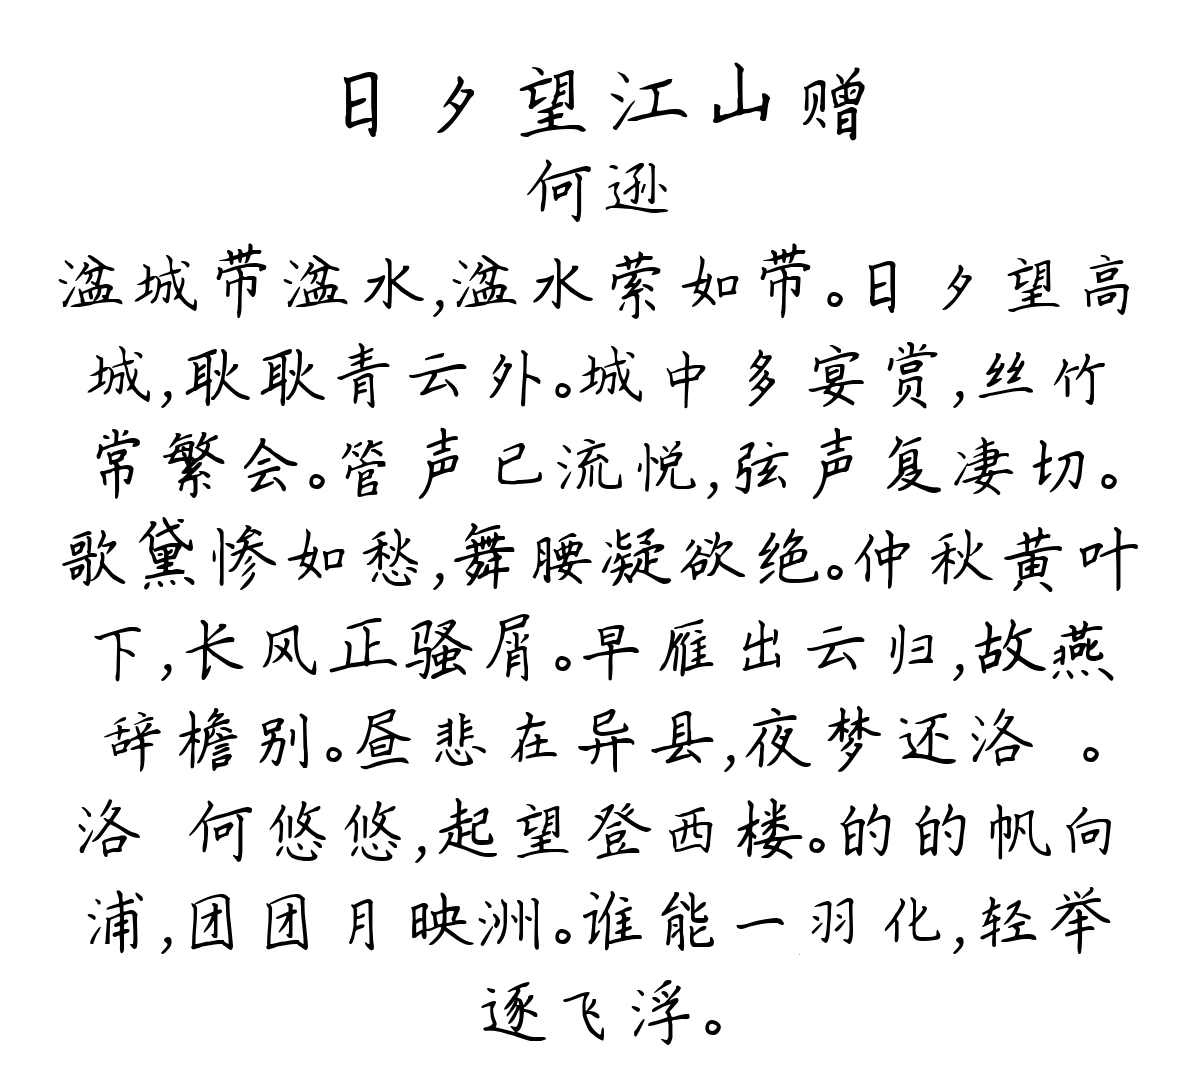 日夕望江山赠
何逊
湓城带湓水,湓水萦如带。日夕望高
城,耿耿青云外。城中多宴赏,丝竹
常繁会。管声已流悦,弦声复凄切。
歌黛惨如愁,舞腰凝欲绝。仲秋黄叶
下,长风正骚屑。早雁出云归,故燕
辞檐别。昼悲在异县,夜梦还洛 。
洛 何悠悠,起望登西楼。的的帆向
浦,团团月映洲。谁能一羽化,轻举
逐飞浮。